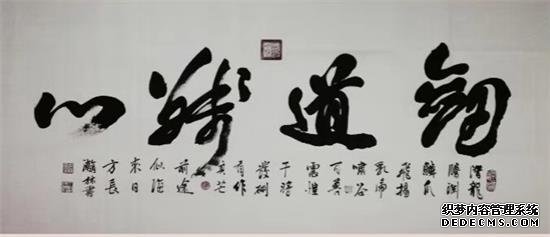 劍道心
潛龍
騰渊
鱗爪
飛揚
乳虎
嘯谷
百獸
震惶
干將
發硎
有作
其芒
前途
似海
来日
方長
瀚林書
织梦内容管理系统
DEDECMS.COM